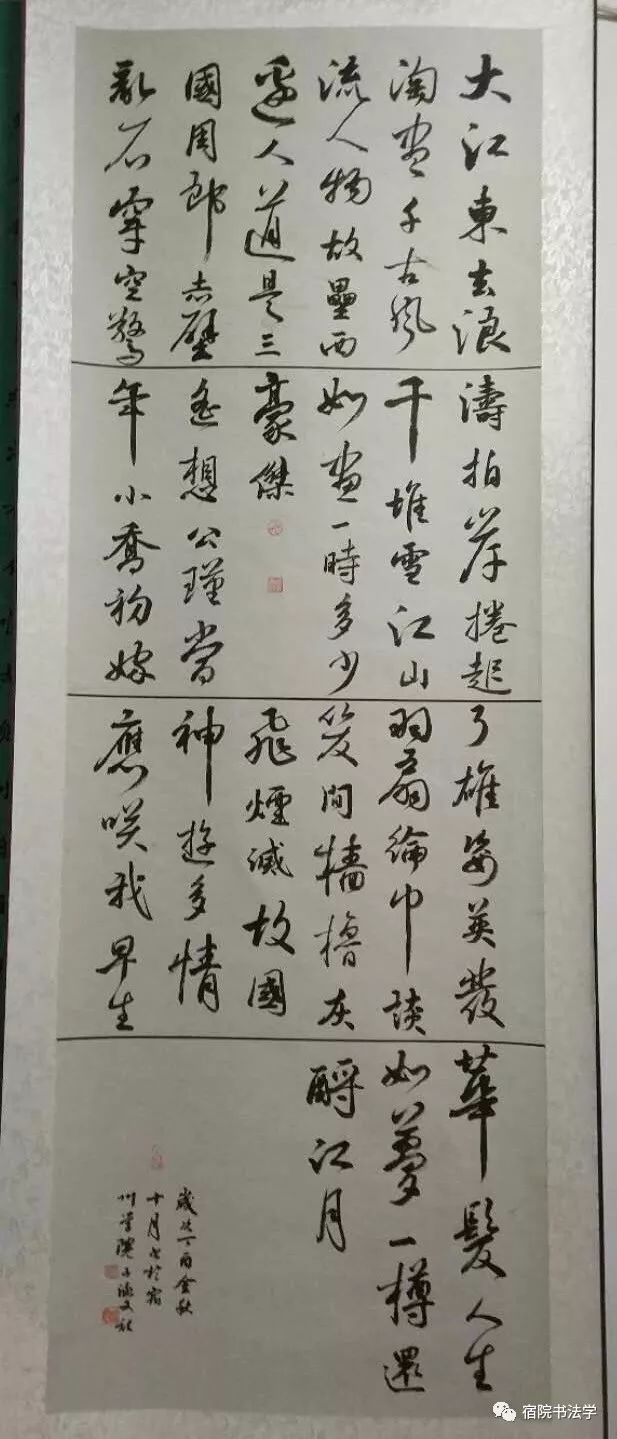 大江東去浪
淘盡千古風
流人物故壘西
邊人道是三
國周郎赤壁
亂石穿空驚
濤拍岸捲起
千堆雪江山
如畫一時多少
豪傑
遙想公瑾當
年小喬初嫁
了雄姿英發
羽扇綸巾談
笑間檣櫓灰
飛煙滅故國
神遊多情
應咲我早生
華髮人生
如夢一樽還
酹江月
歲在丁酉金秋
十月書於宿
州學院
宿院书法学